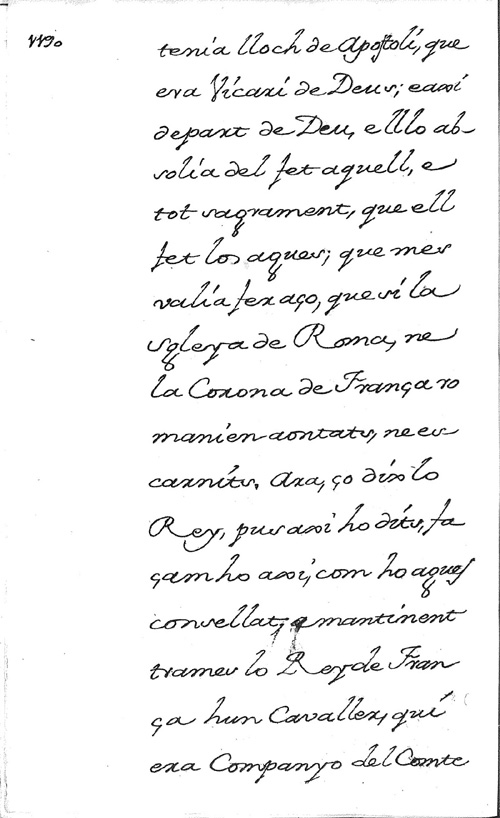 1190
tenia lloch de Apostoli, que
era Vicari de Deus; e axi
de part de Deu, e lllo ab-
solia del fet aquell, e
tot sagrament, que ell
fet los agues; que mes
valia fer aço, que si la
sgleya de Roma, ne
la Corona de França ro
manien aontats, ne es-
carnits. Ara, ço dix lo
Rey, pus axi ho dits, fa
çam ho axi, com ho agues
consellat, e mantinent
trames lo Rey de Fran
ça hun Cavaller, qui
era Companyo del Comte